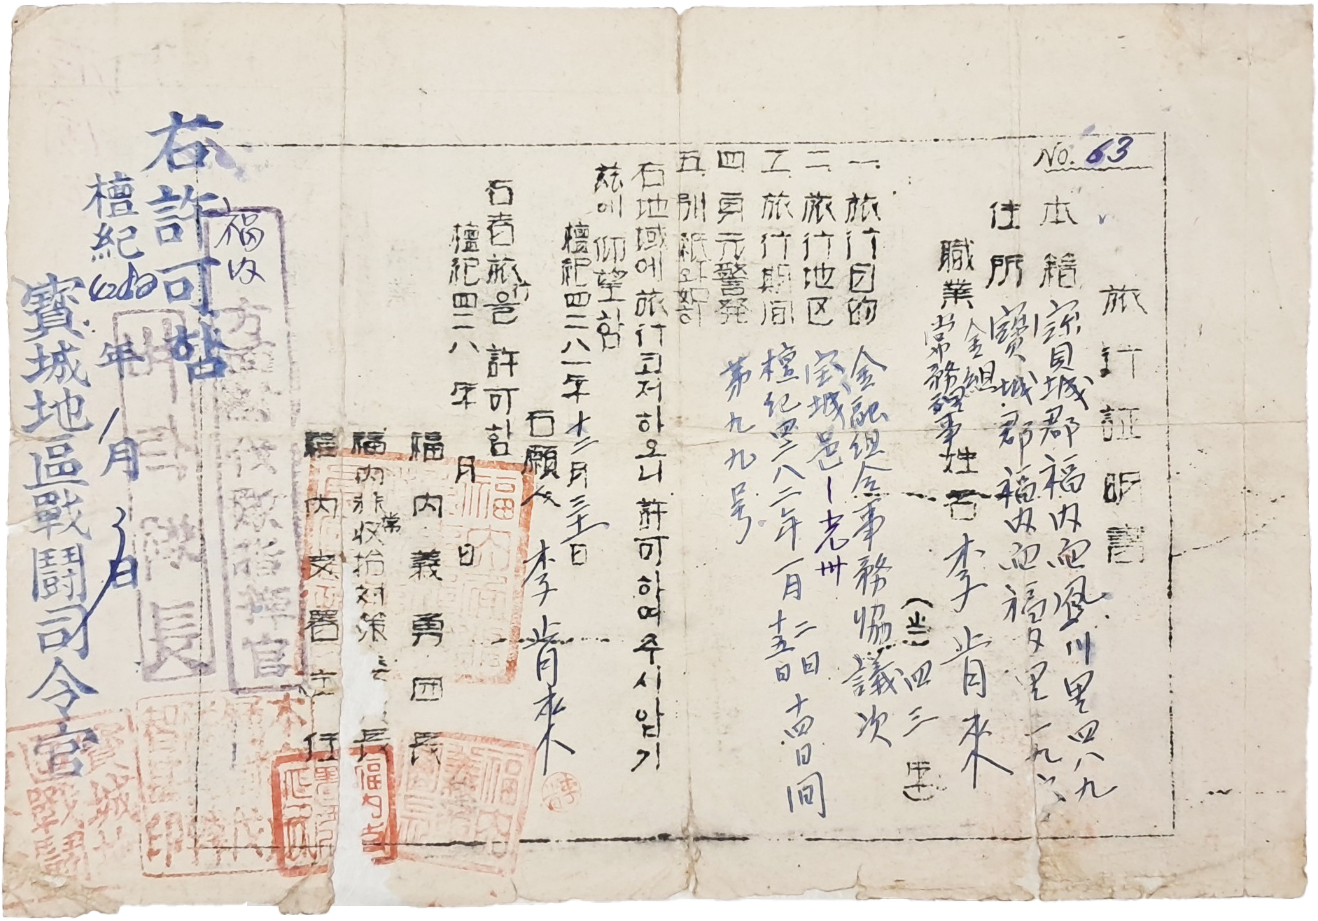 No. 63
旅行証明書
本籍 寶城郡福内面鳳川里四八九
住所 寶城郡福内面福内里一九
職業 金組常務理事 姓名 李肯來
(当 四三 才)
一. 旅行目的 金融組合事務協議次
二. 旅行地区 宝城邑-光州
旅行期间 檀紀四二八二年一月二日 十五日 十四日间
四 第九九号
五 別紙
右地域에 旅行코저하오니 許可하여주시압기
玆에 仰望함
檀紀四二八一年十二月三十一日
右願人 李肯來
右者旅行을 許可함
檀紀四二八 年 月 日
福内義勇団長
福内非常收拾対策 長
福内支署主任
福内 方面 隊指揮官
隊長
右許可함
檀紀4282年1月3日
寶城地區戰鬪司令官